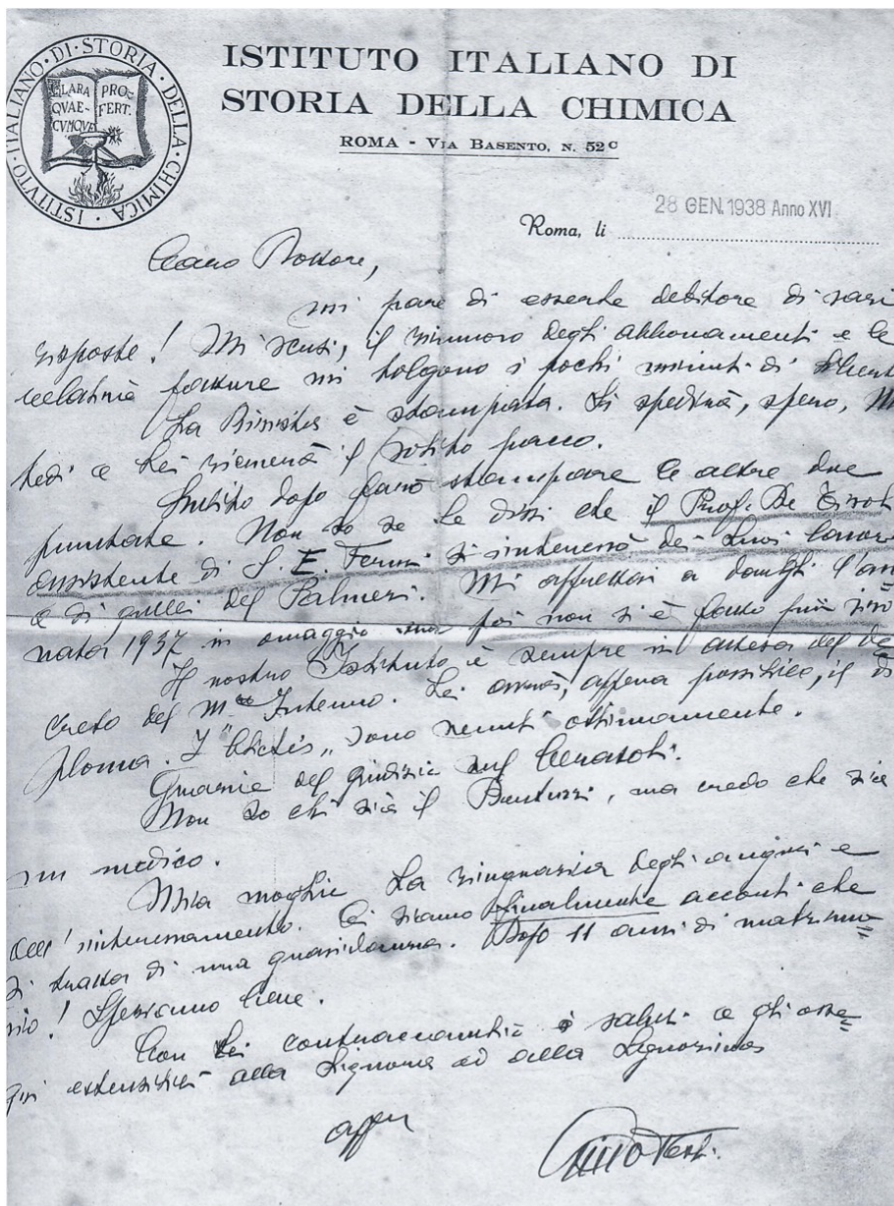 ISTITUTO ITALIANO DI STORIA DELLA CHIMICA
CLARA PRO-
QUAE- FERT.
CVNQUE
ISTITUTO ITALIANO DI
STORIA DELLA CHIMICA
ROMA - VIA BASENTO, N. 52 C
Roma, li 28 GEN. 1938 Anno XVI
Caro Dottore,
mi pare di essere debitore di varie
risposte! Mi scusi, il rinnovo degli abbonamenti e le
relative fatture mi tolgono i pochi minuti di
La Rivista è stampata. Si spedirà, spero,
tedì e Lei riceverà il solito pacco.
Subito dopo farò stampare le altre due
puntate. Non so se Le dissi che il Prof. De
assistente di S. E. Fermi si interessò dei Suoi lavori
e di quelli del Palmieri. Mi affrettai a dargli l'an
nata 1937 in omaggio ma poi non si è fatto più vivo
Il nostro Istituto è sempre in attesa del de
creto del M. Interno. Lei avrà, appena possibile, il di
ploma. I "clichès" sono venuti ottimamente.
Grazie del giudizio sul
Non so chi sia il , ma credo che sia
un medico.
Mia moglie La ringrazia degli auguri e
dell'interessamento. Ci siamo finalmente accorti che
si tratta di una gravidanza. Dopo 11 anni di matrimo=
nio! Speriamo bene.
Con Lei contraccambio i saluti e gli osse=
qui estensibili alla Signora ed alla Signorina
aff
Gino Testi.